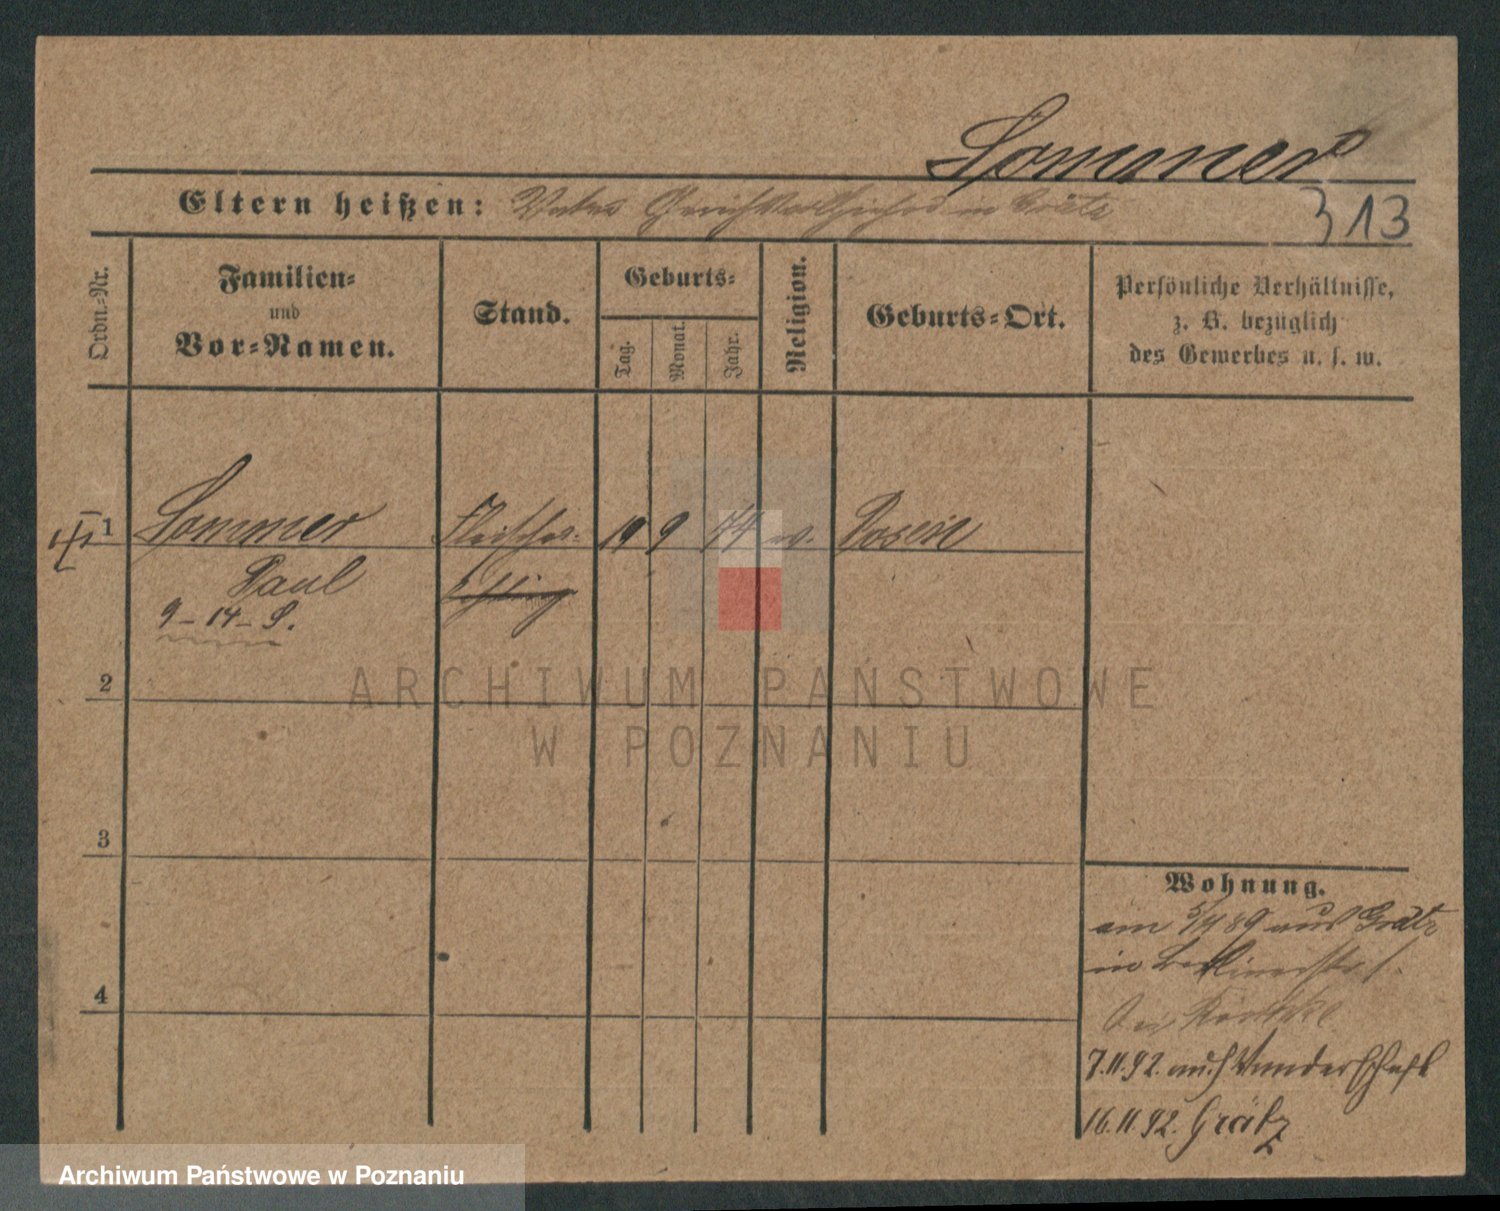 Sommer
Eltern heißen: Vater Gerichtsvollzieher in Grätz
313
Ordn.-Nr.
Familien-
und
Vor-Namen.
Stand.
Geburts-
Tag.
Monat.
Jahr.
Religion.
Geburts-Ort.
Persönliche Verhältnisse,
z. B. bezüglich
des Gewerbes u. s. w.
1 Sommer Fleischer- 19 9 74 Posen
Paul
9-14-S.
2
ARCHIWUM PAŃSTWOWE
W POZNANIU
3
4
Wohnung.
am 5/4 89 aus Grätz
in Berlinerstr.
bei
7.11.92. auf Wanderschaft
16.11.92. Grätz
Archiwum Państwowe w Poznaniu